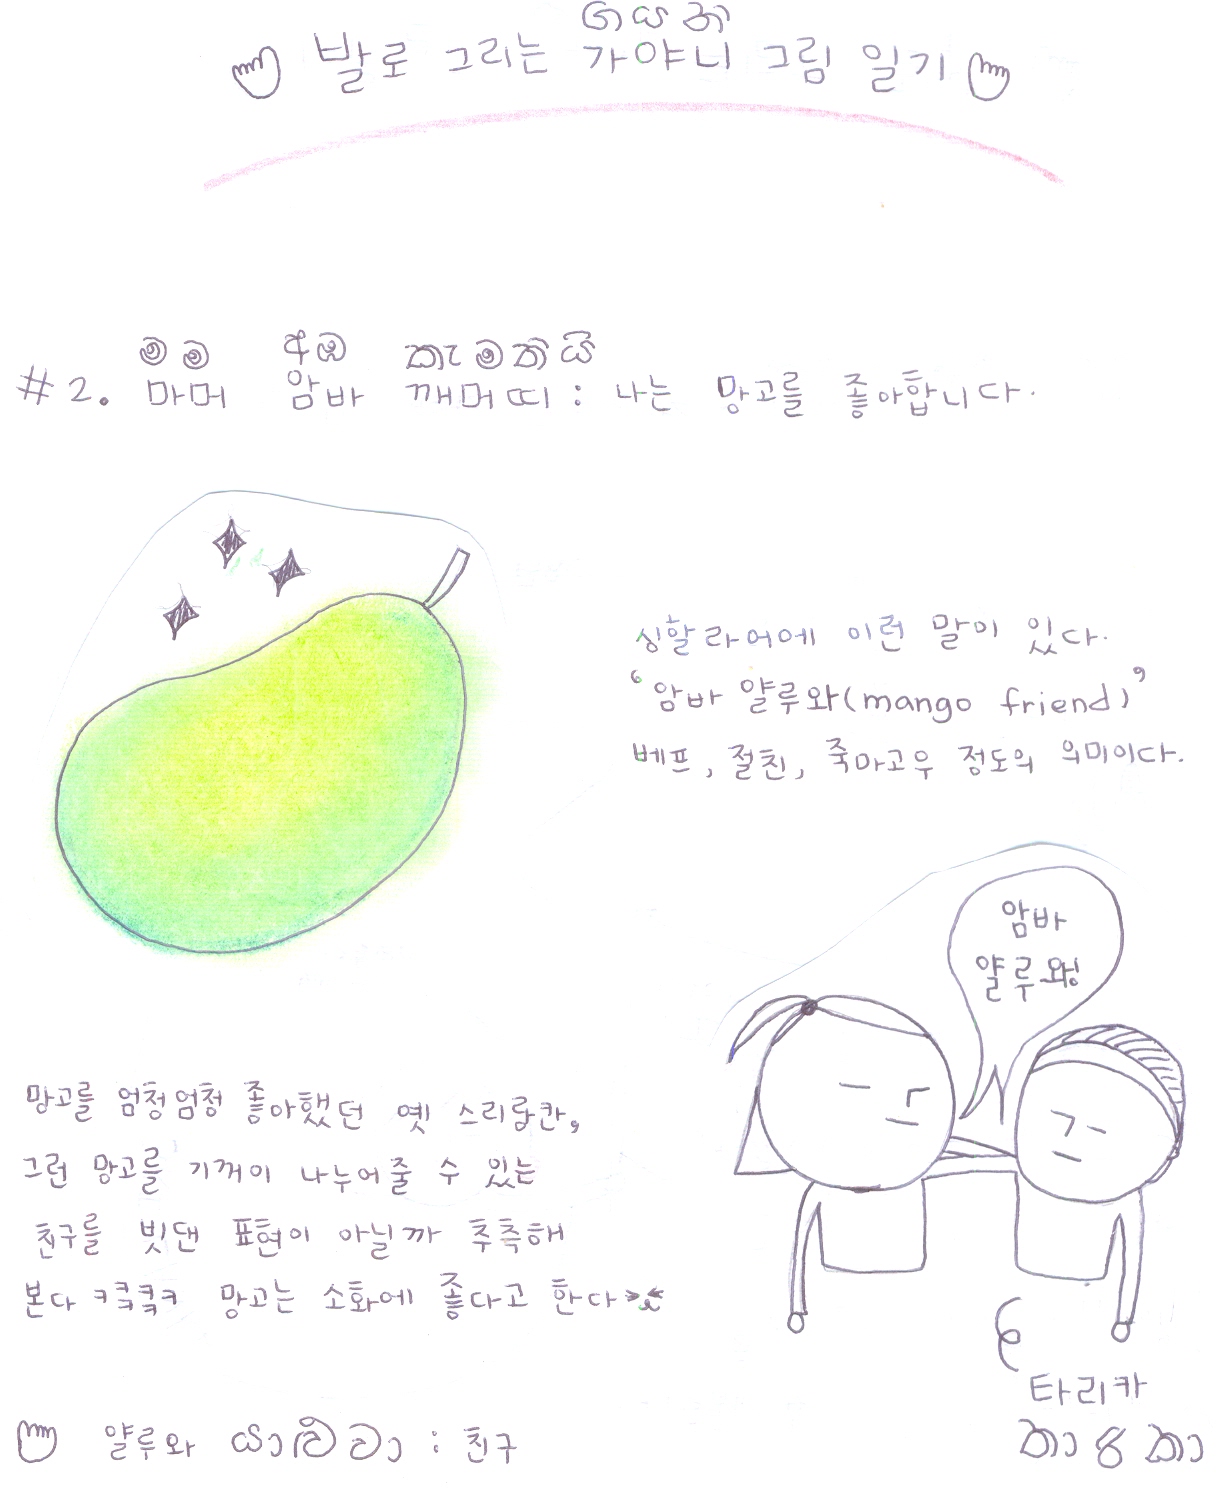 발로 그리는 가야니 그림 일기
#2. 마머 암바 깨머띠 : 나는 망고를 좋아합니다.
싱할라어에 이런 말이 있다.
"암바 얄루와(mango friend)"
베프, 절친, 죽마고우 정도의 의미이다.
암바
얄루와!
망고를 엄청엄청 좋아했던 옛 스리랑칸,
그런 망고를 기꺼이 나누어줄 수 있는
친구를 빗댄 표현이 아닐까 추측해
본다 ㅋ킄킄ㅋ 망고는 소화에 좋다고 한다
타리카
얄루와 යාළුවා : 친구